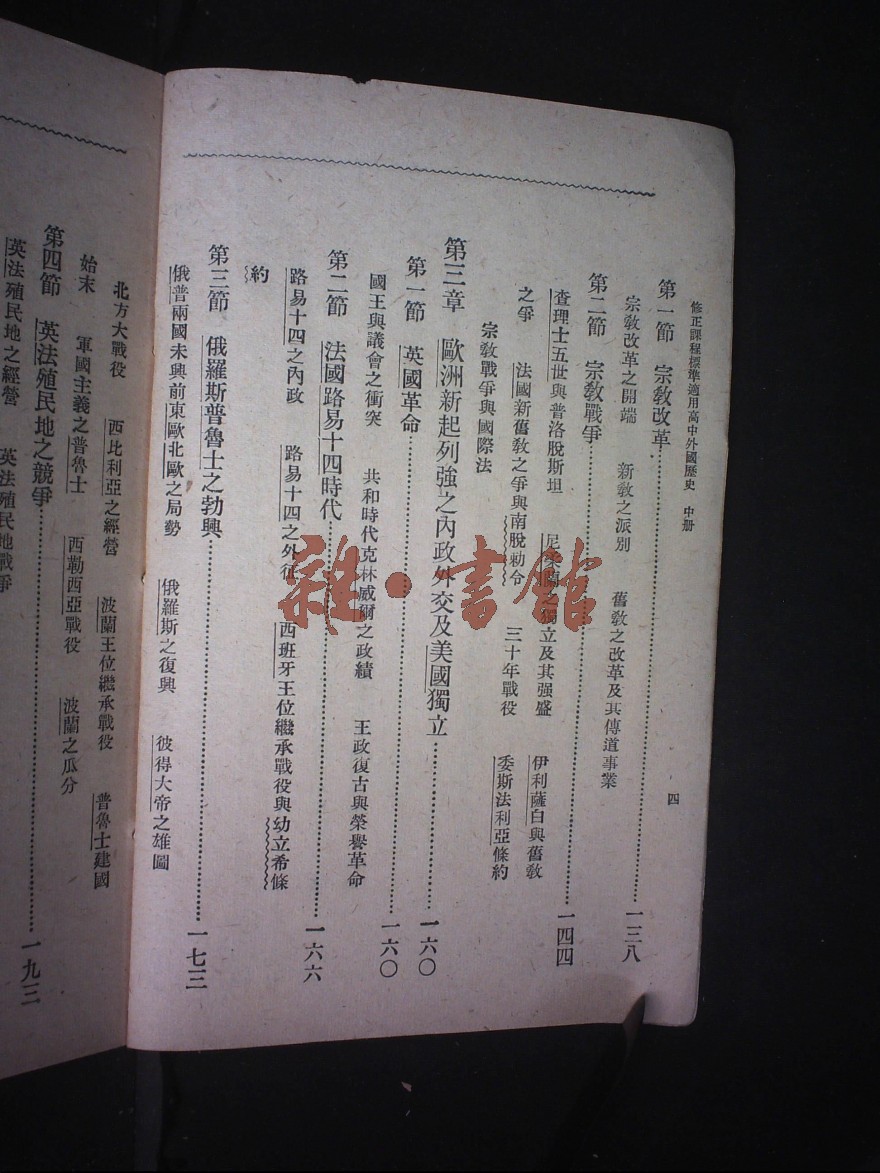 修正課程標準適用高中外國歷史　中册
四
第一節　宗敎改革……一三八
宗敎改革之開端　新敎之派別　舊敎之改革及其傳道事業
第二節　宗敎戰爭……一四四
查理士五世與普洛脫斯坦　尼柔蘭之獨立及其强盛　伊利薩白與舊敎
之爭　法國新舊敎之爭與南脫勅令　三十年戰役　委斯法利亞條約
宗敎戰爭與國際法
第三章　歐洲新起列強之內政外交及美國獨立……一六〇
第一節　英國革命……一六〇
國王與議會之衝突　共和時代克林威爾之政績　王政復古與榮譽革命
第二節　法國路易十四時代……一六六
路易十四之內政　路易十四之外征　西班牙王位繼承戰役與幼立希條
約
第三節　俄羅斯普魯士之勃興……一七三
俄普兩國未興前東歐北歐之局勢　俄羅斯之復興　彼得大帝之雄圖
北方大戰役　西比利亞之經營　波蘭王位繼承戰役　普魯士建國
始末　軍國主義之普魯士　西勒西亞戰役　波蘭之瓜分
第四節　英法殖民地之競爭……一九三
英法殖民地之經營　英法殖民地戰爭
雜·書館